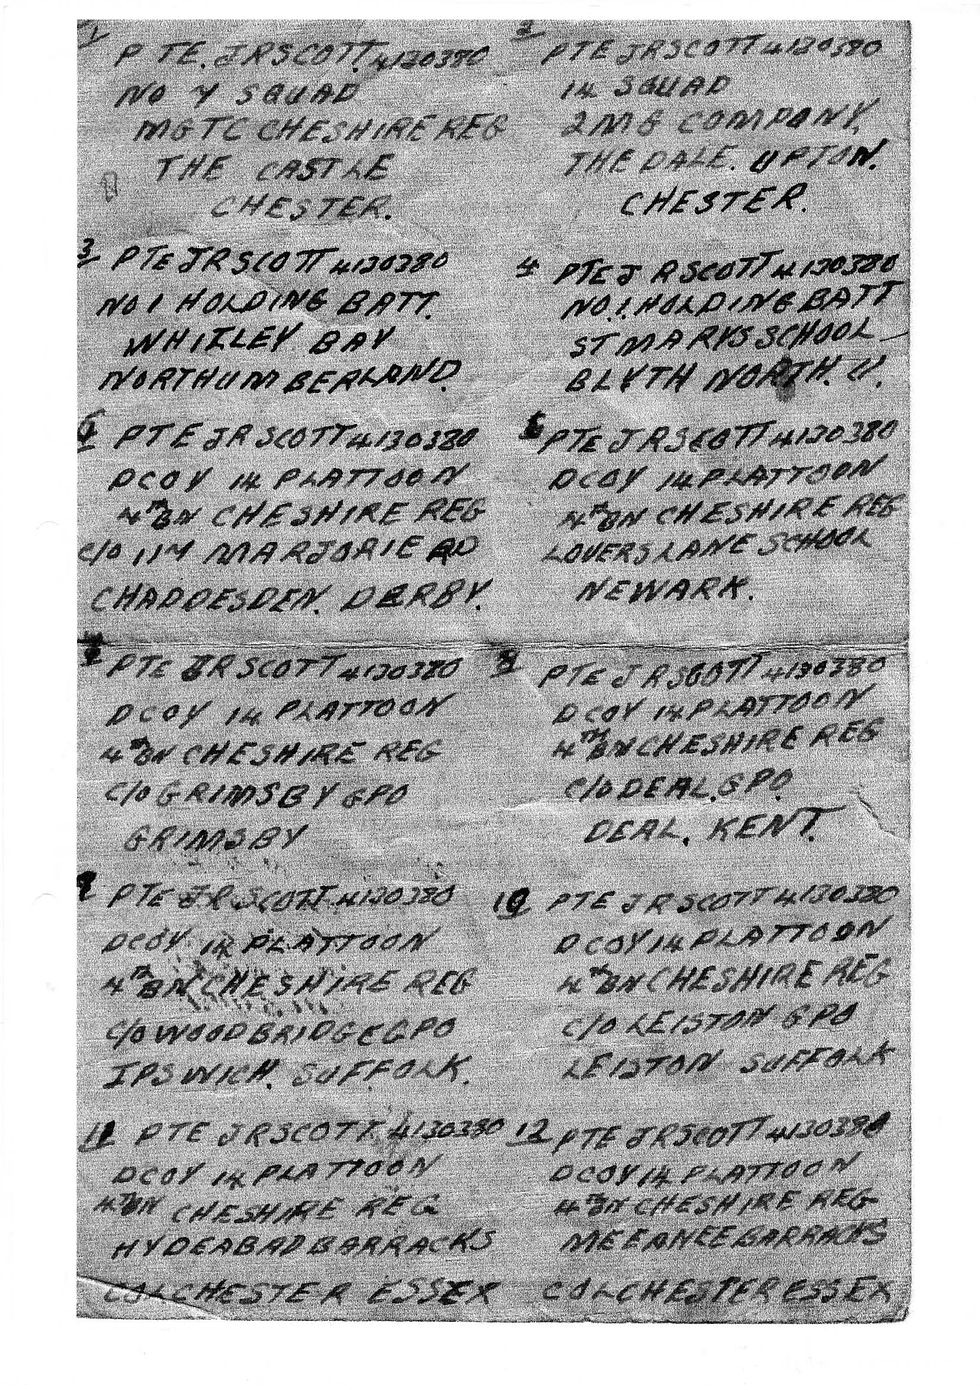 1
PTE. JR SCOTT. 4130380
NO Y SQUAD
MGTC CHESHIRE REG
THE CASTLE
CHESTER.
2
PTE JR SCOTT 4130380
14 SQUAD
2 MG COMPANY,
THE DALE. UPTON.
CHESTER.
3 PTE JR SCOTT 4130380
NO 1 HOLDING BATT.
WHITLEY BAY
NORTHUMBERLAND.
4 PTE J R SCOTT 4130380
NO. 1. HOLDING BATT
ST MARYS SCHOOL
BLYTH NORTH. U.
5 PTE JR SCOTT 4130380
D COY 14 PLATTOON
4TH BN CHESHIRE REG
C/O 114 MARJORIE RD
CHADDESDEN. DERBY.
6 PTE JR SCOTT 4130380
D COY 14 PLATTOON
4TH BN CHESHIRE REG
LOVERS LANE SCHOOL
NEWARK.
7 PTE JR SCOTT 4130380
D COY 14 PLATTOON
4TH BN CHESHIRE REG
C/O GRIMSBY GPO
GRIMSBY
8 PTE J R SCOTT 4130380
D COY 14 PLATTOON
4TH BN CHESHIRE REG
C/O DEAL. GPO.
DEAL. KENT.
9 PTE JR SCOTT 4130380
D COY 14 PLATTOON
4TH BN CHESHIRE REG
C/O WOODBRIDGE GPO
IPSWICH. SUFFOLK.
10 PTE JR SCOTT 4130380
D COY 14 PLATTOON
4TH BN CHESHIRE REG
C/O LEISTON GPO
LEISTON SUFFOLK
11 PTE JR SCOTT 4130380
D COY 14 PLATTOON
4TH BN CHESHIRE REG
HYDEABAD BARRACKS
COLCHESTER ESSEX
12 PTE JR SCOTT 4130380
D COY 14 PLATTOON
4TH BN CHESHIRE REG
MEEANEE BARRACKS
COLCHESTER ESSEX